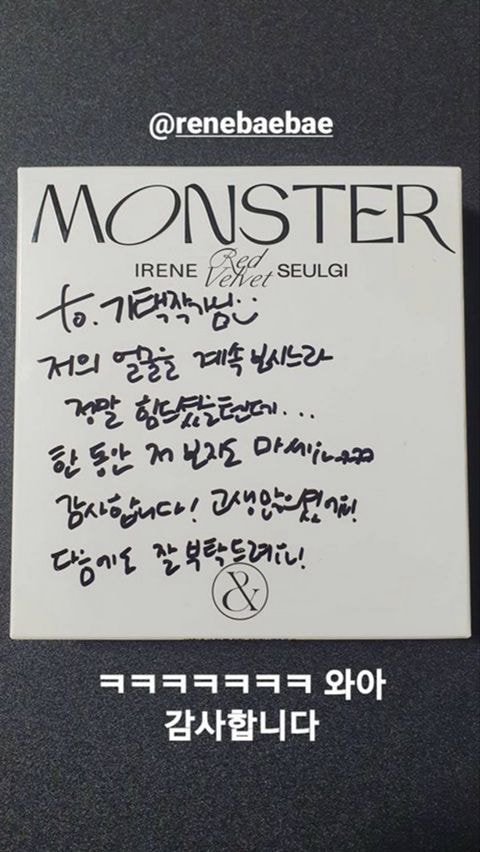 @renebaebae
MONSTER
IRENE Red Velvet SEULGI
to. 기택작가님
저의 얼굴을 계속 보시느라
정말 힘드셨을텐데...
한동안 저 보지도 마세요ㅋㅋㅋ
감사합니다! 고생많으셨어요!
다음에도 잘 부탁드려요!
&
ㅋㅋㅋㅋㅋㅋㅋ 와아
감사합니다